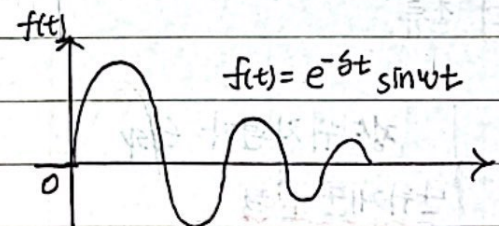 f(t)
f(t) = e^{-δt} sin ωt
0